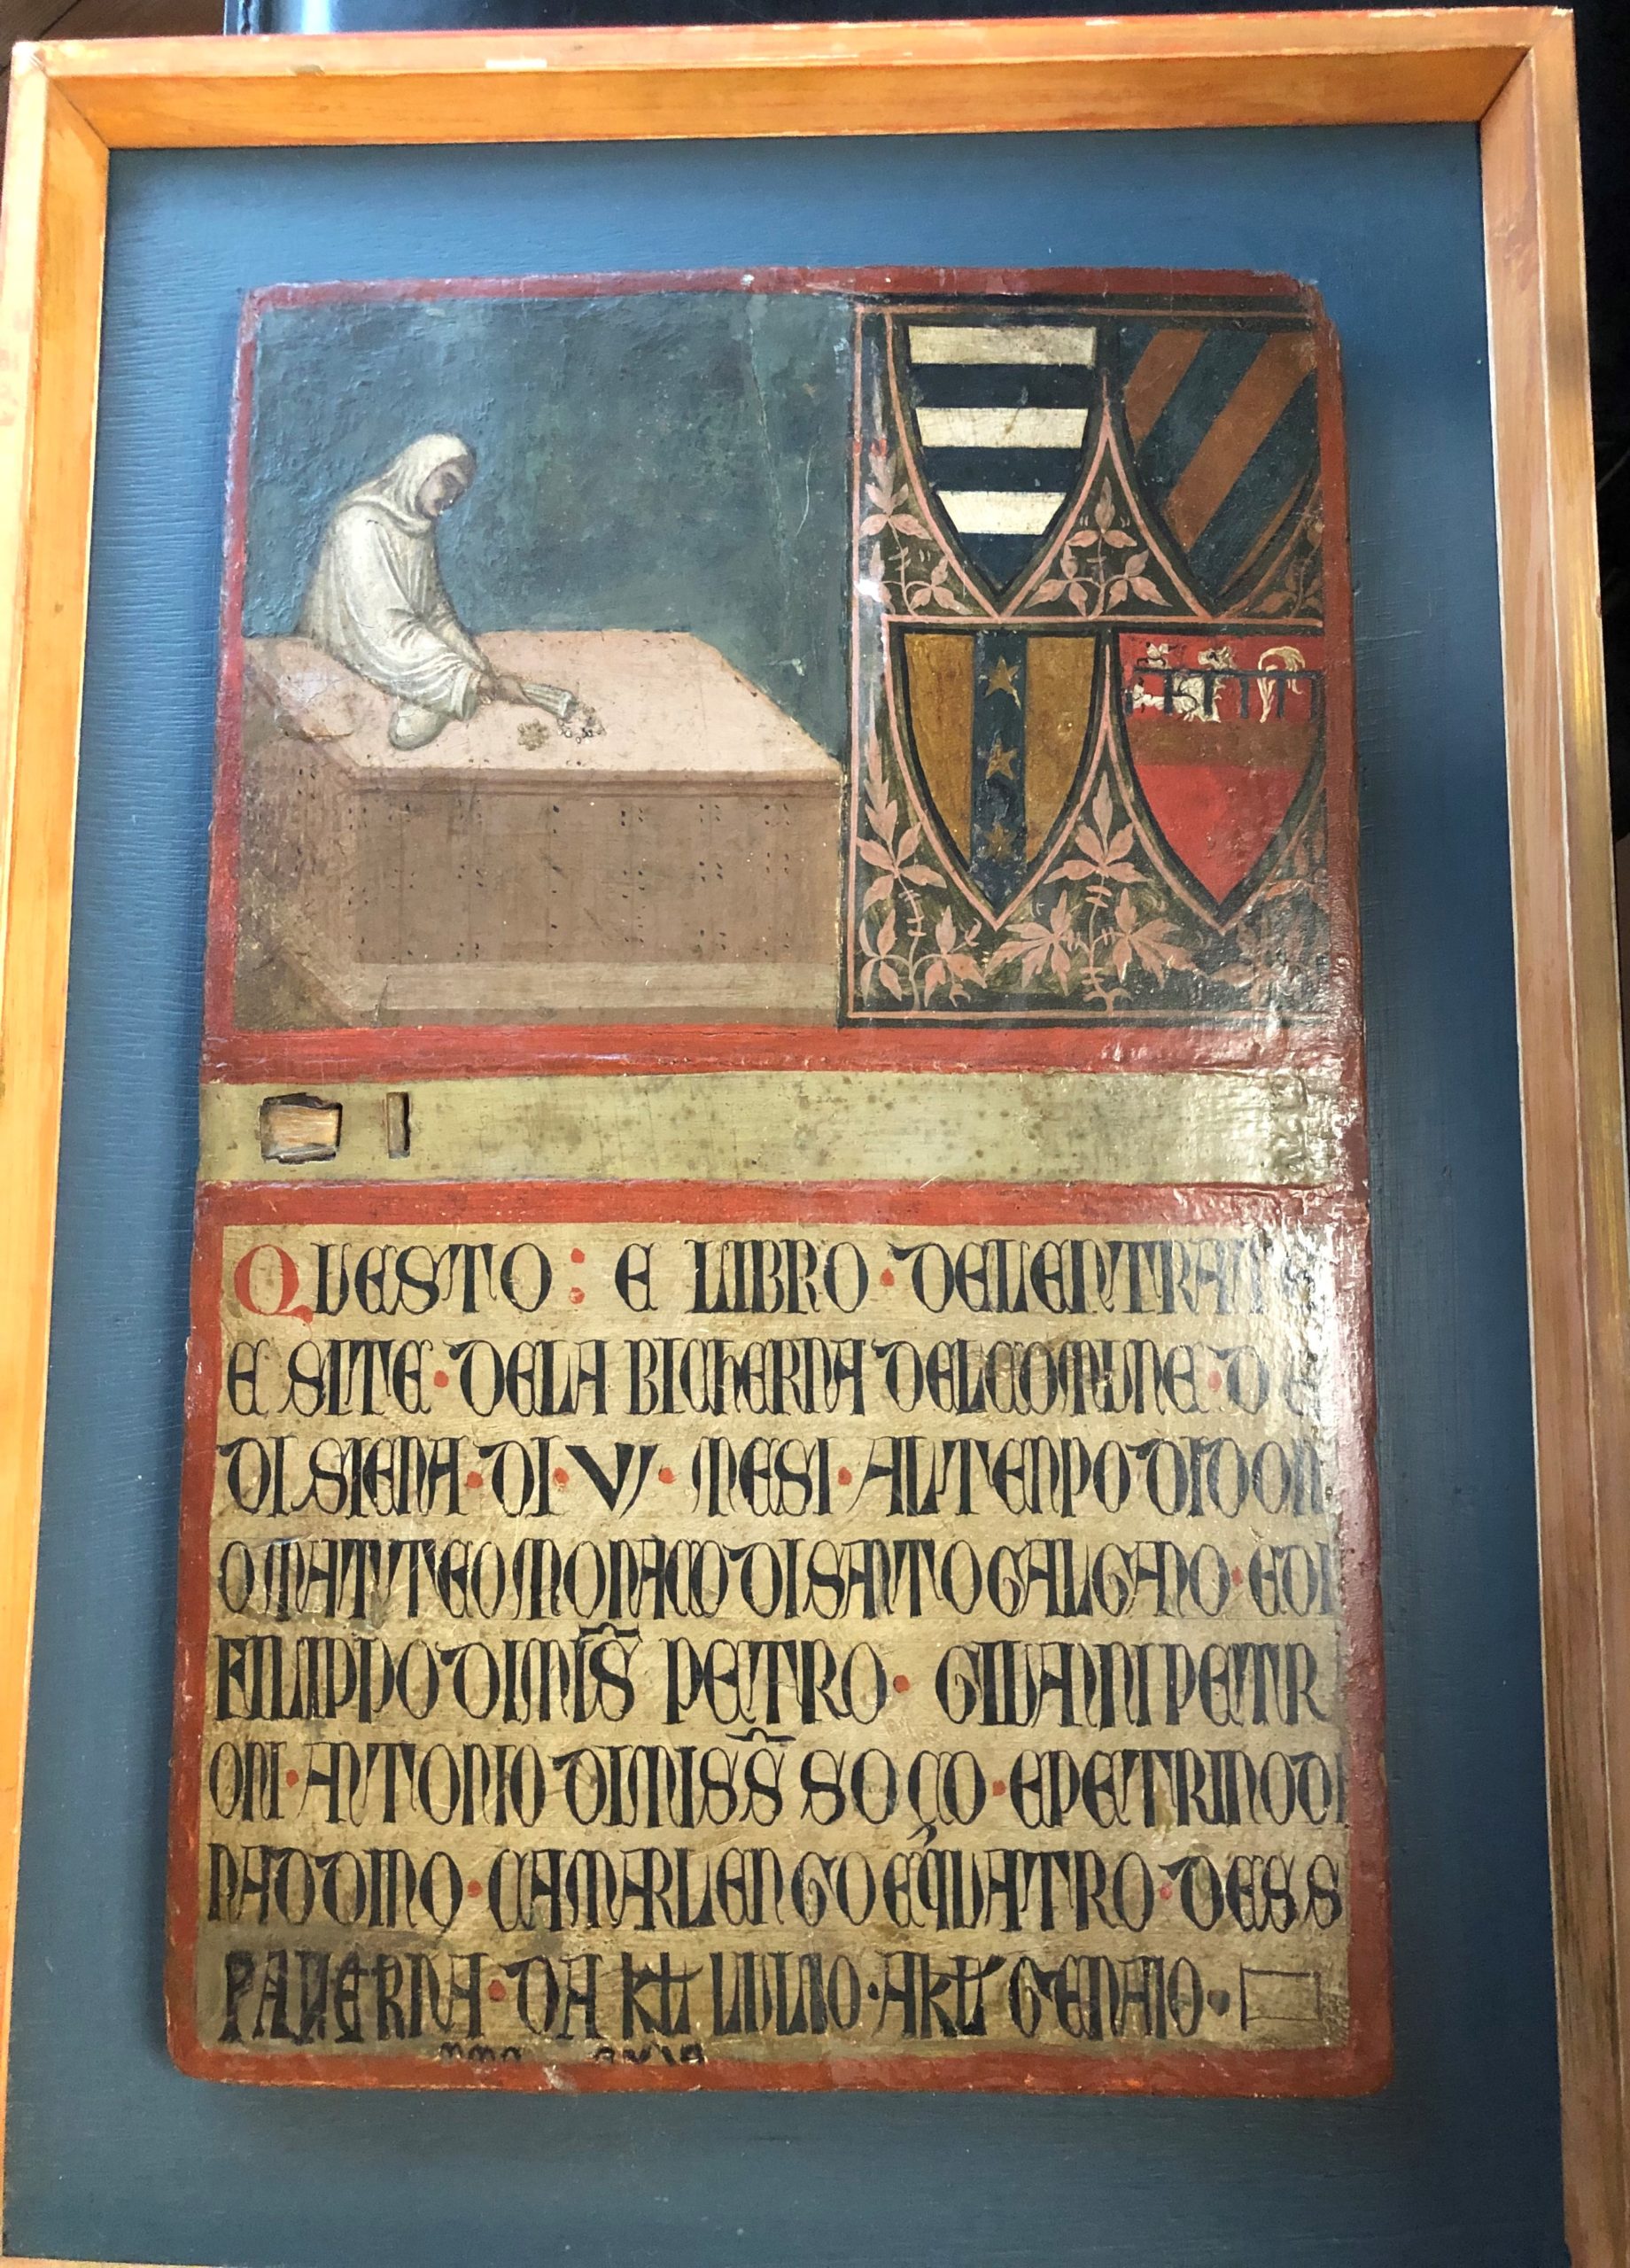 QVESTO : E LIBRO · DELENTRATA
E SITE · DELA BICHERNA DELCOMUNE · DE
DI SIENA · DI · VI · MESI · ALTENPO DIDON
O MATTEO MONACO DISANTO GALGANO · EDI
FILIPPO DIMIS̄ PETRO · GIVANNI PETR
ONI · ANTONIO DIMISS̄ SOÇO · EPETRINO DI
NADDINO · CAMARLENGO EQUATRO · DESS
PAVERNA · DA KL LULIO · AKL GENAIO ·